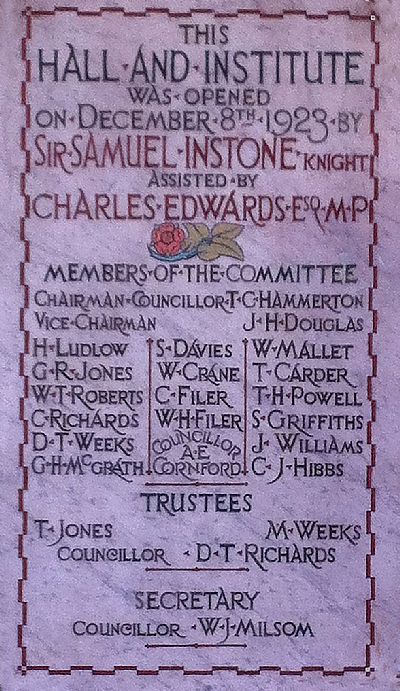 THIS
HALL·AND·INSTITUTE
WAS·OPENED
ON·DECEMBER·8TH·1923·BY
SIR·SAMUEL·INSTONE·KNIGHT
ASSISTED·BY
CHARLES·EDWARDS·ESQ·M·P
MEMBERS·OF·THE·COMMITTEE
CHAIRMAN·COUNCILLOR·T·G·HAMMERTON
VICE·CHAIRMAN J·H·DOUGLAS
H·LUDLOW S·DAVIES W·MALLET
G·R·JONES W·CRANE T·CARDER
W·T·ROBERTS C·FILER T·H·POWELL
C·RICHARDS W·H·FILER S·GRIFFITHS
D·T·WEEKS COUNCILLOR A·E J·WILLIAMS
G·H·MCGRATH CORNFORD C·J·HIBBS
TRUSTEES
T·JONES M·WEEKS
COUNCILLOR ·D·T·RICHARDS
SECRETARY
COUNCILLOR ·W·J·MILSOM